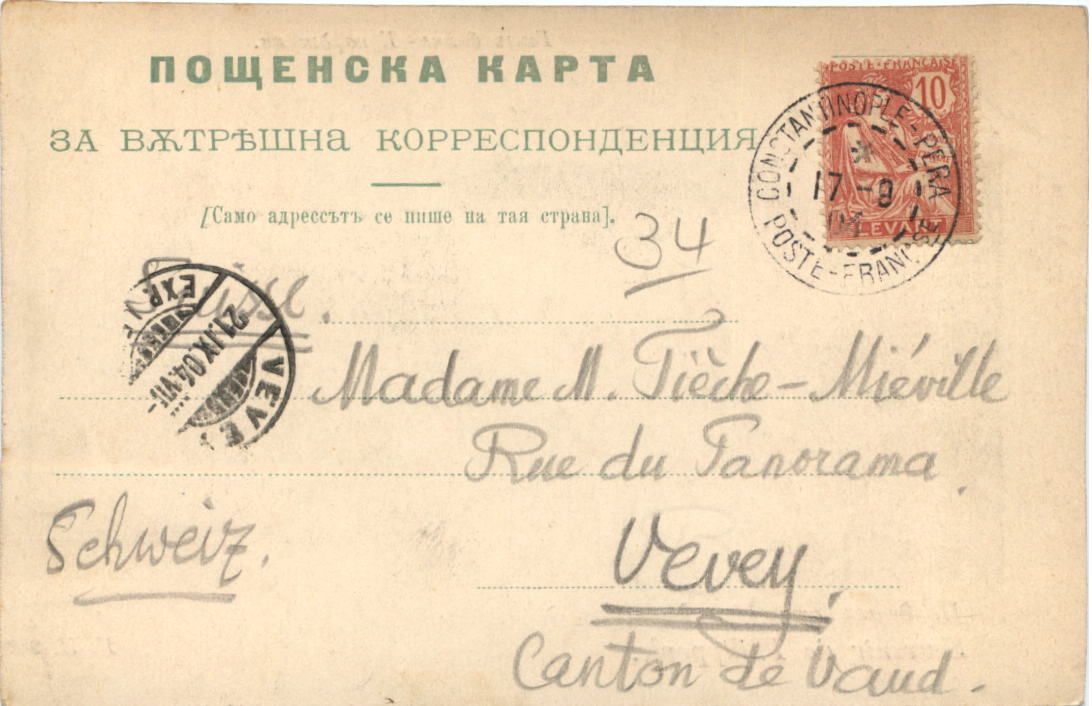 ПОЩЕНСКА КАРТА
ЗА ВѪТРѢШНА КОРРЕСПОНДЕНЦИЯ
[Само адрессътъ се пише на тая страна].
POSTE FRANÇAISE
10
LEVANT
CONSTANTINOPLE-PERA
17-9
04
POSTE-FRANÇSE
34
Suisse.
EXP.
21.IX.04.VII-
VEVEY
Madame M. Tièche-Miéville
Rue du Panorama
Schweiz.
Vevey.
Canton de Vaud.